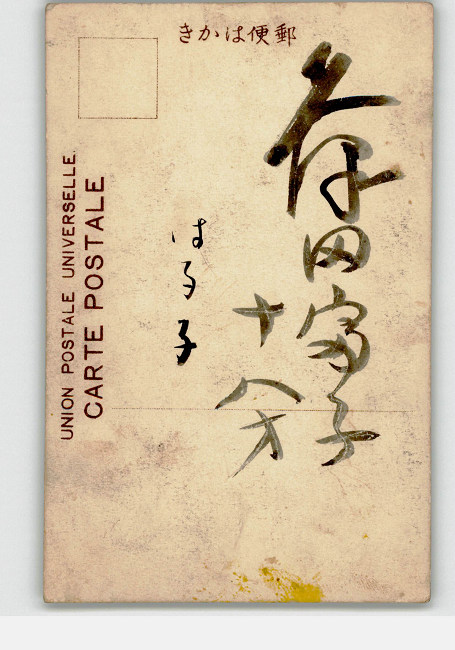 きかは便郵
存田富子
十八才
はる子
UNION POSTALE UNIVERSELLE.
CARTE POSTALE